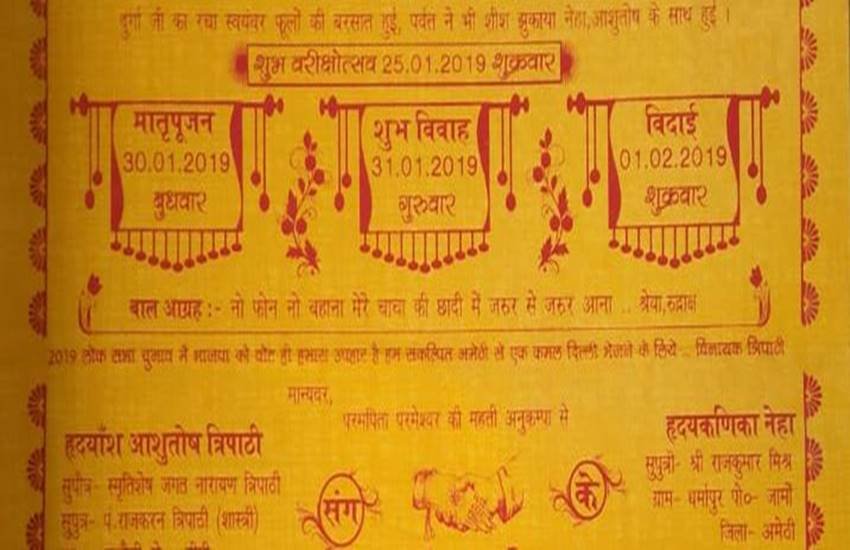 दुर्गा जी का रचा स्वयंवर फूलों की बरसात हुई, पर्वत ने भी शीश झुकाया नेहा,आशुतोष के साथ हुई ।
शुभ वरीक्षोत्सव 25.01.2019 शुक्रवार
मातृपूजन
30.01.2019
बुधवार
शुभ विवाह
31.01.2019
गुरुवार
विदाई
01.02.2019
शुक्रवार
बाल आग्रह :- नो फोन नो बहाना मेरे चाचा की छादी में जरुर से जरुर आना .. श्रेया,रुद्राक्ष
2019 लोक सभा चुनाव में भाजपा को वोट ही हमारा उपहार है हम संकल्पित अमेठी से एक कमल दिल्ली भेजने के लिये .. विनायक त्रिपाठी
मान्यवर,
परमपिता परमेश्वर की महती अनुकम्पा से
हृदयाँश आशुतोष त्रिपाठी
सुपौत्र- स्मृतिशेष जगत नारायण त्रिपाठी
सुपुत्र- पं.राजकरन त्रिपाठी (शास्त्री)
संग
के
हृदयकणिका नेहा
सुपुत्री- श्री राजकुमार मिश्र
ग्राम- धर्मापुर पो०- जामों
जिला- अमेठी